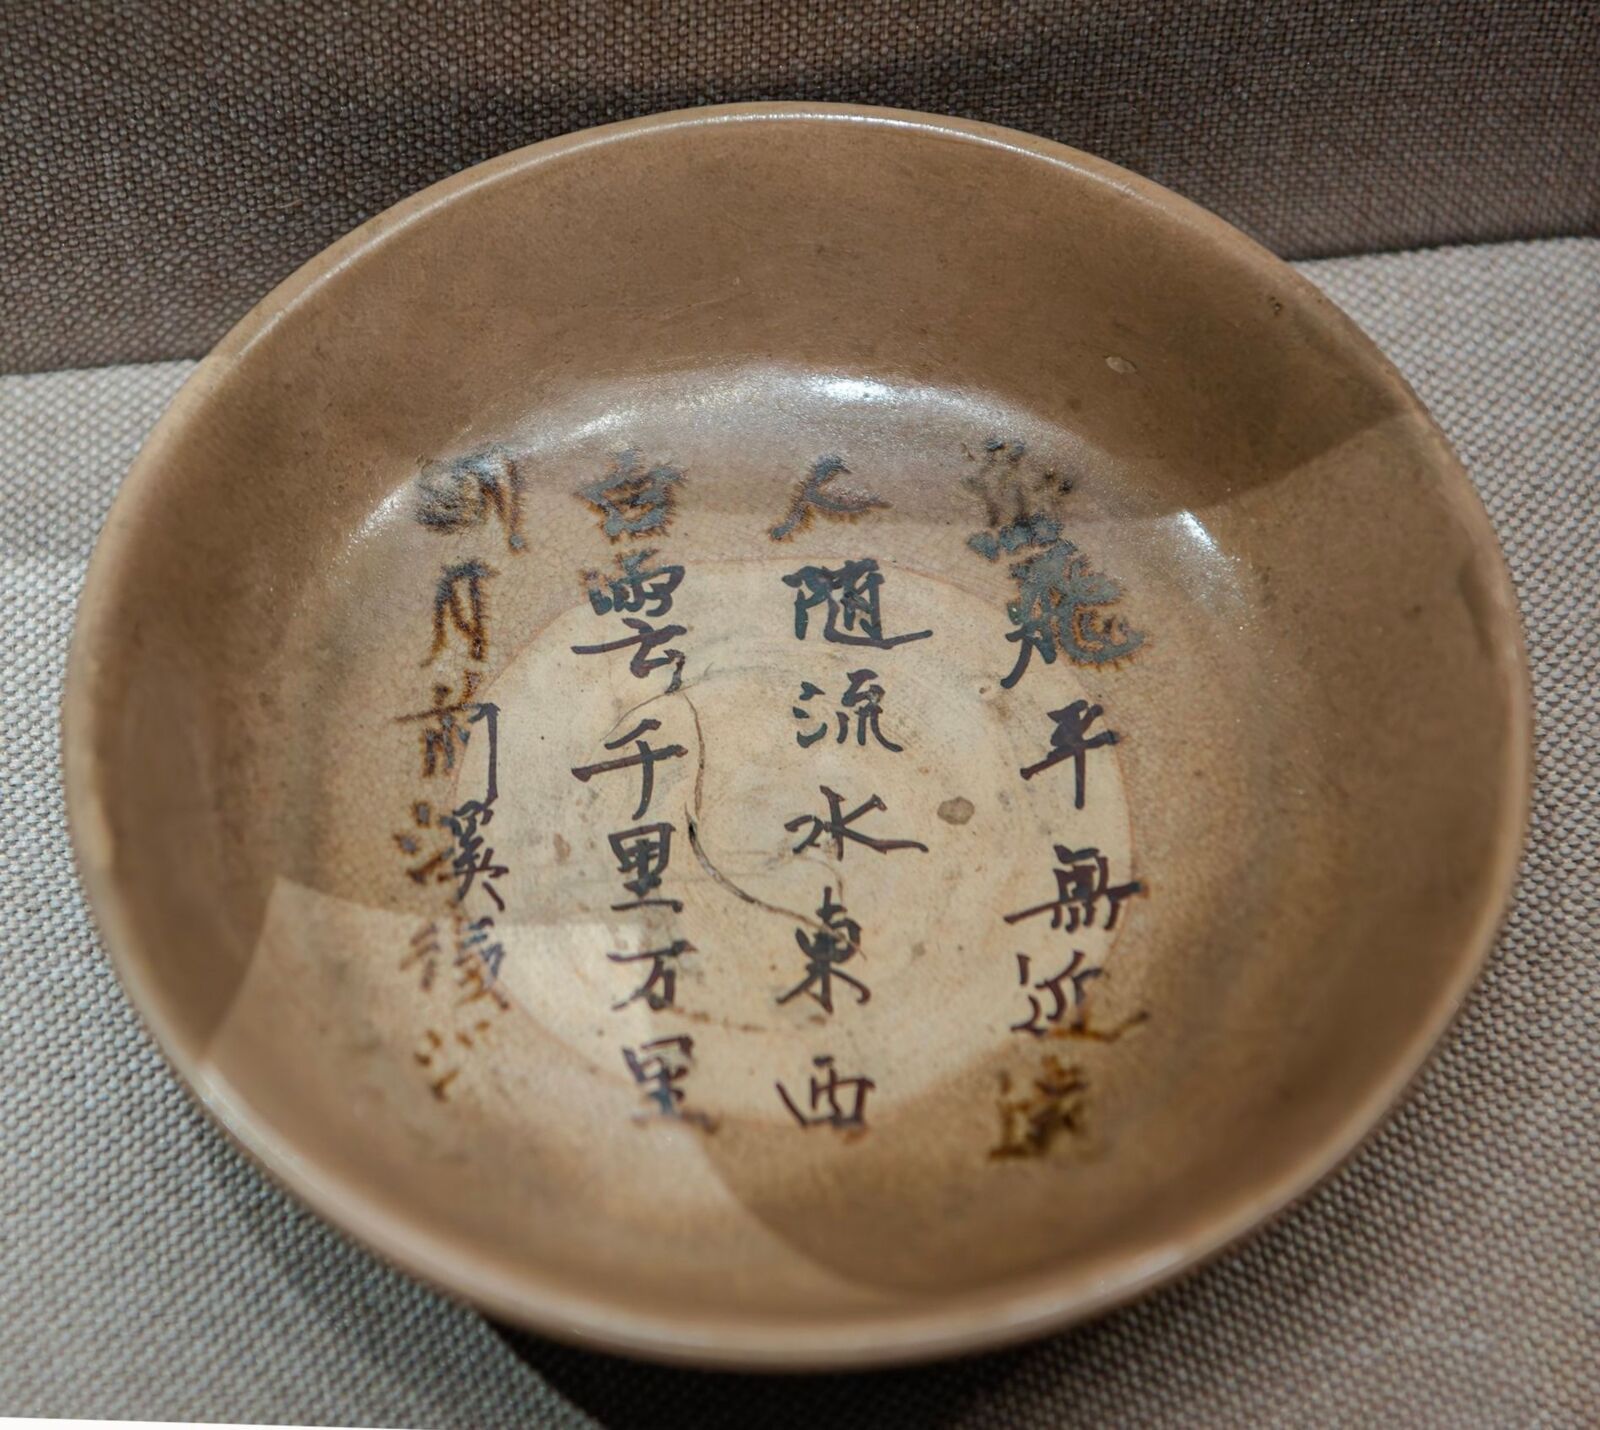 鳥飛平無近遠
人随流水東西
白雲千里万里
明月前溪後